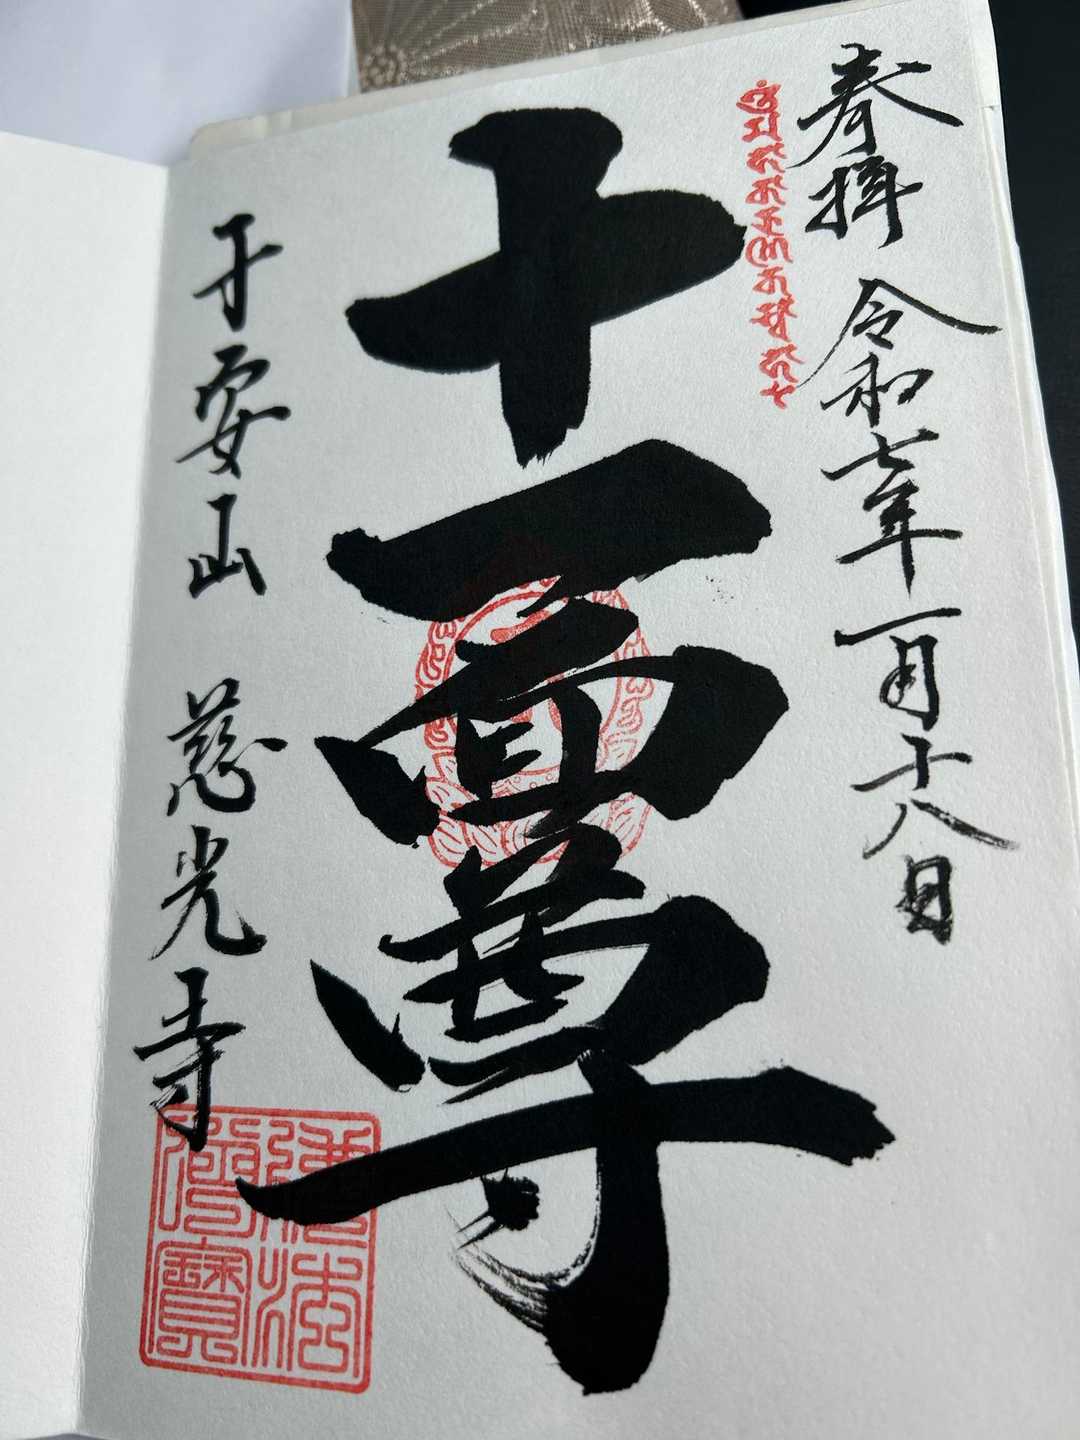 奉拝 令和七年一月十八日
十一面尊
子安山 慈光寺
佛法僧寳